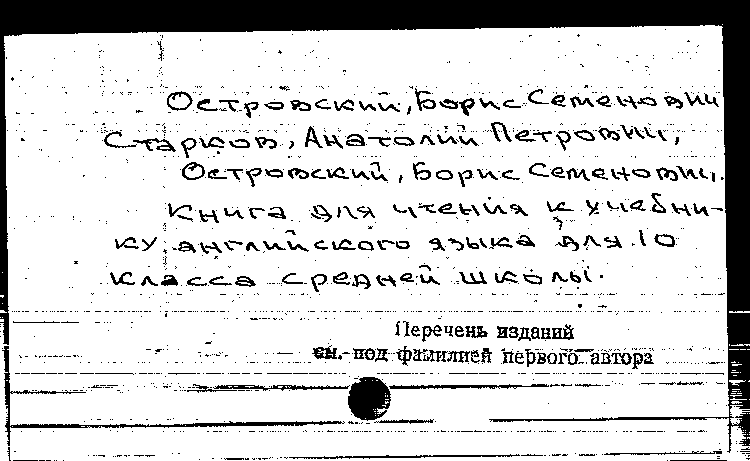 Островский, Борис Семенович
Старков, Анатолий Петрович,
Островский, Борис Семенович.
Книга для чтения к учебни-
ку английского языка для 10
класса средней школы.
Перечень изданий
см. под фамилией первого автора